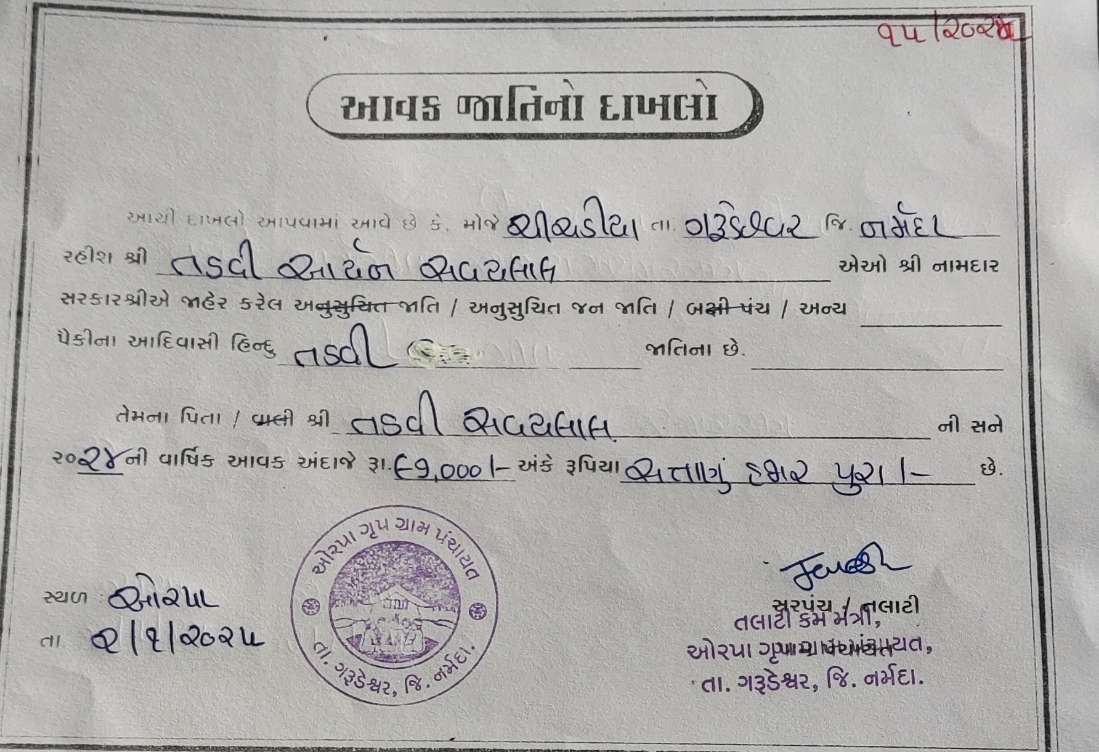 ૧૫/૨૦૨૫
આવક જાતિનો દાખલો
આથી દાખલો આપવામાં આવે છે કે, મોજે તા. ગરૂડેશ્વર જિ. નર્મદા
રહીશ શ્રી તડવી આર્યન એઓ શ્રી નામદાર
સરકારશ્રીએ જાહેર કરેલ અનુસુચિત જાતિ / અનુસુચિત જન જાતિ / બક્ષી પંચ / અન્ય
પૈકીના આદિવાસી હિન્દુ તડવી જાતિના છે.
તેમના પિતા / વાલી શ્રી તડવી ની સને
૨૦૨૪ની વાર્ષિક આવક અંદાજે રૂા. ૯૭,૦૦૦/- અંકે રૂપિયા સતાણું હજાર પુરા /- છે.
ઓરપા ગૃપ ગ્રામ પંચાયત
તા. ગરૂડેશ્વર, જિ. નર્મદા.
સ્થળ : ઓરપા
તા ૨/૧/૨૦૨૫
સરપંચ / તલાટી
તલાટી કમ મંત્રી,
ઓરપા ગૃપ ગ્રામ પંચાયત,
તા. ગરૂડેશ્વર, જિ. નર્મદા.